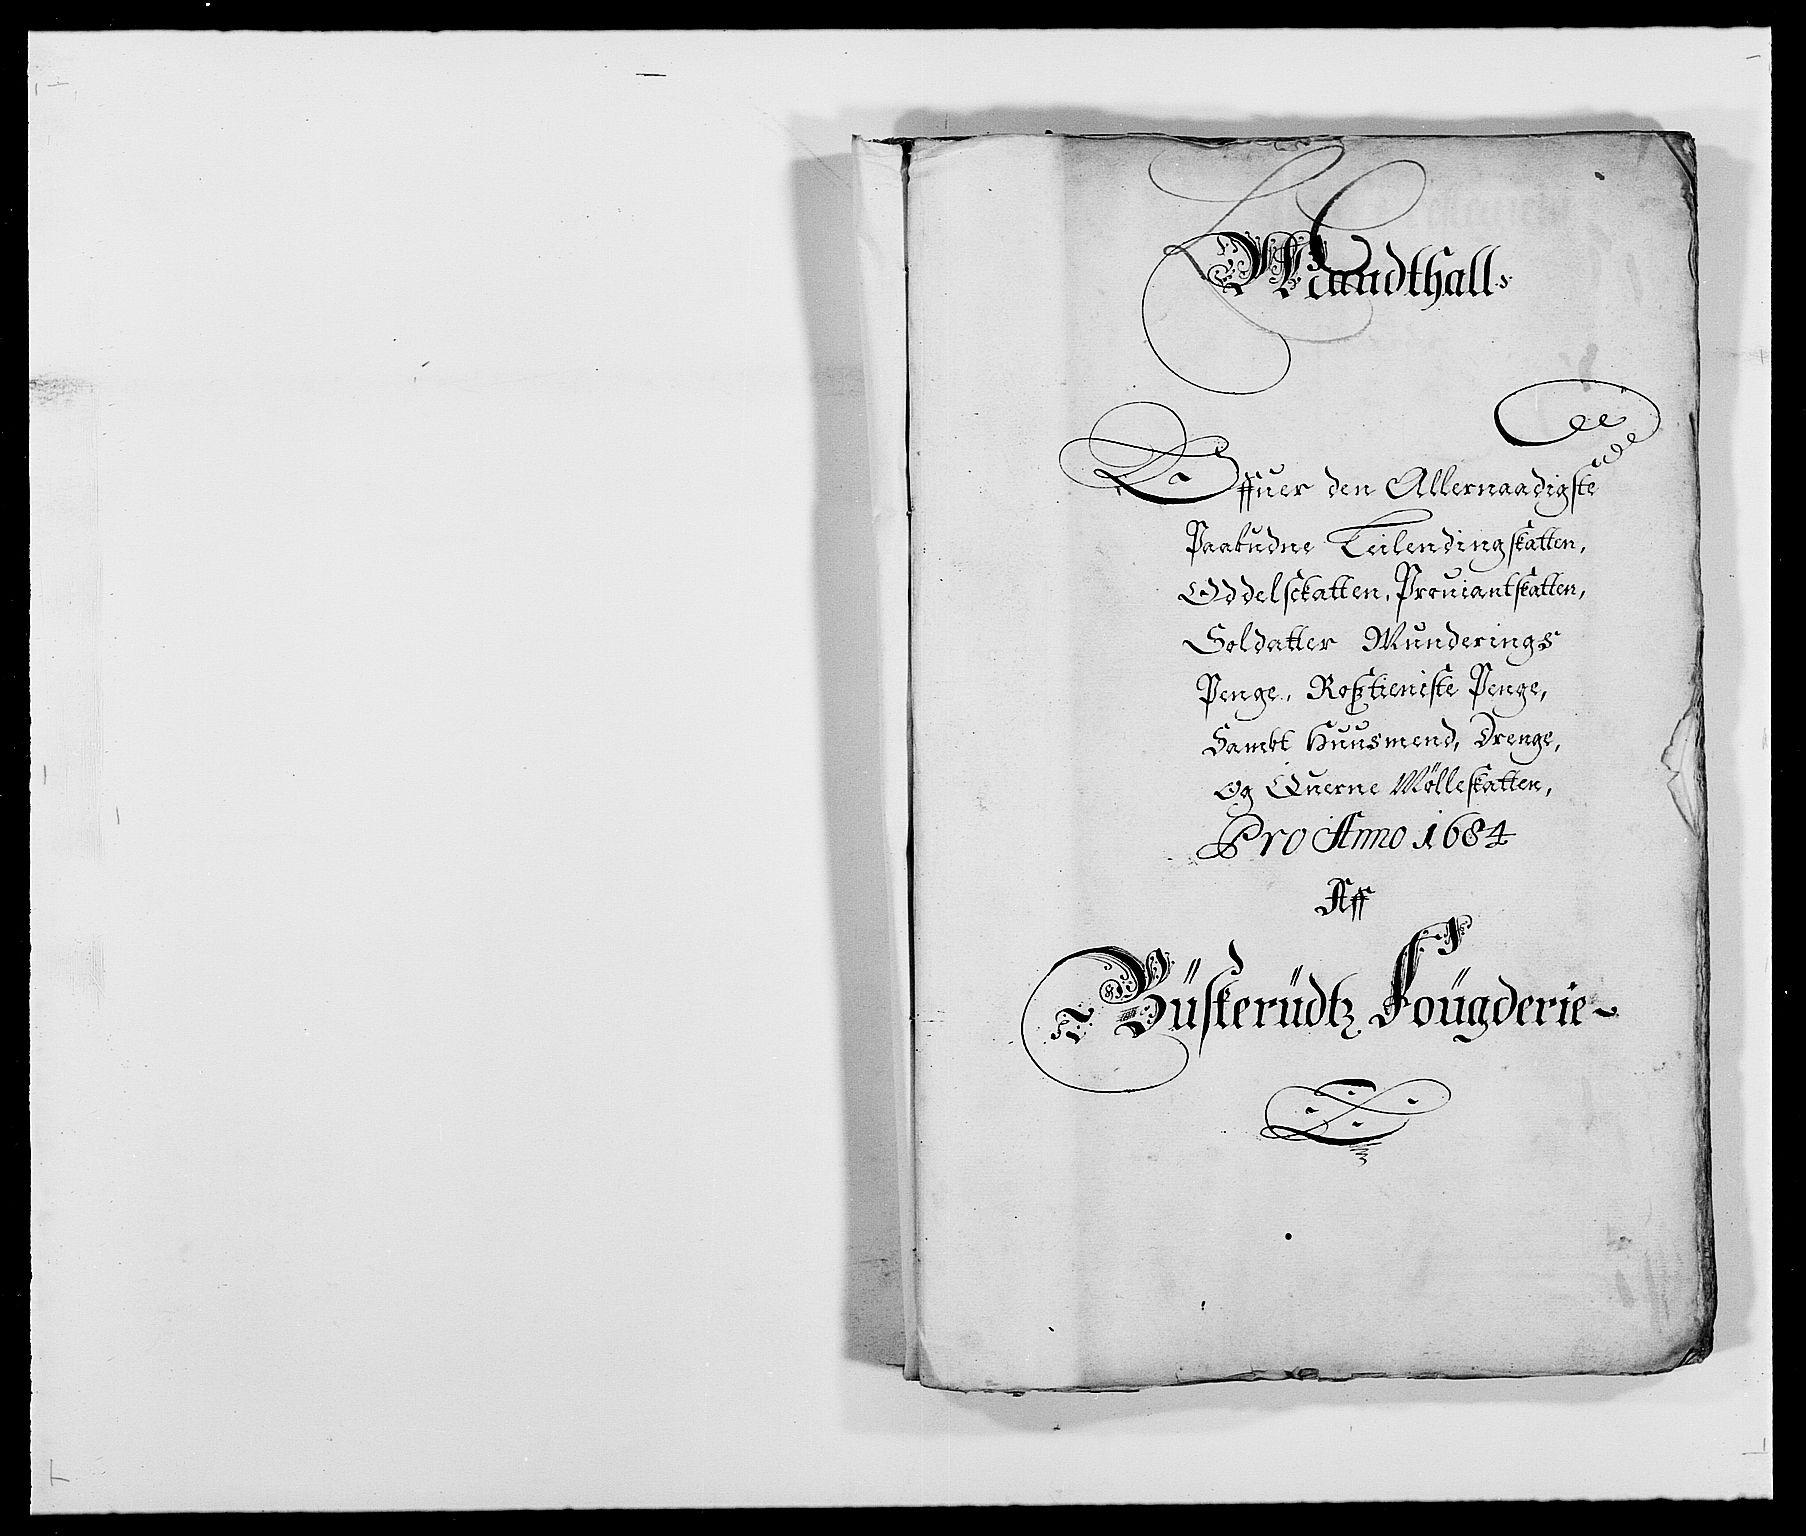 Mandthall
Offuer den Allernaadigste
Paabudne Leilendingskatten,
Oddelsckatten, Prouiantskatten,
Soldatter Munderings
Penge, Rosztieniste Penge,
Sambt Huusmend, Drenge,
Og Querne Mölleskatten,
Pro Anno 1684
Aff
Büskerüdtz Foügderie